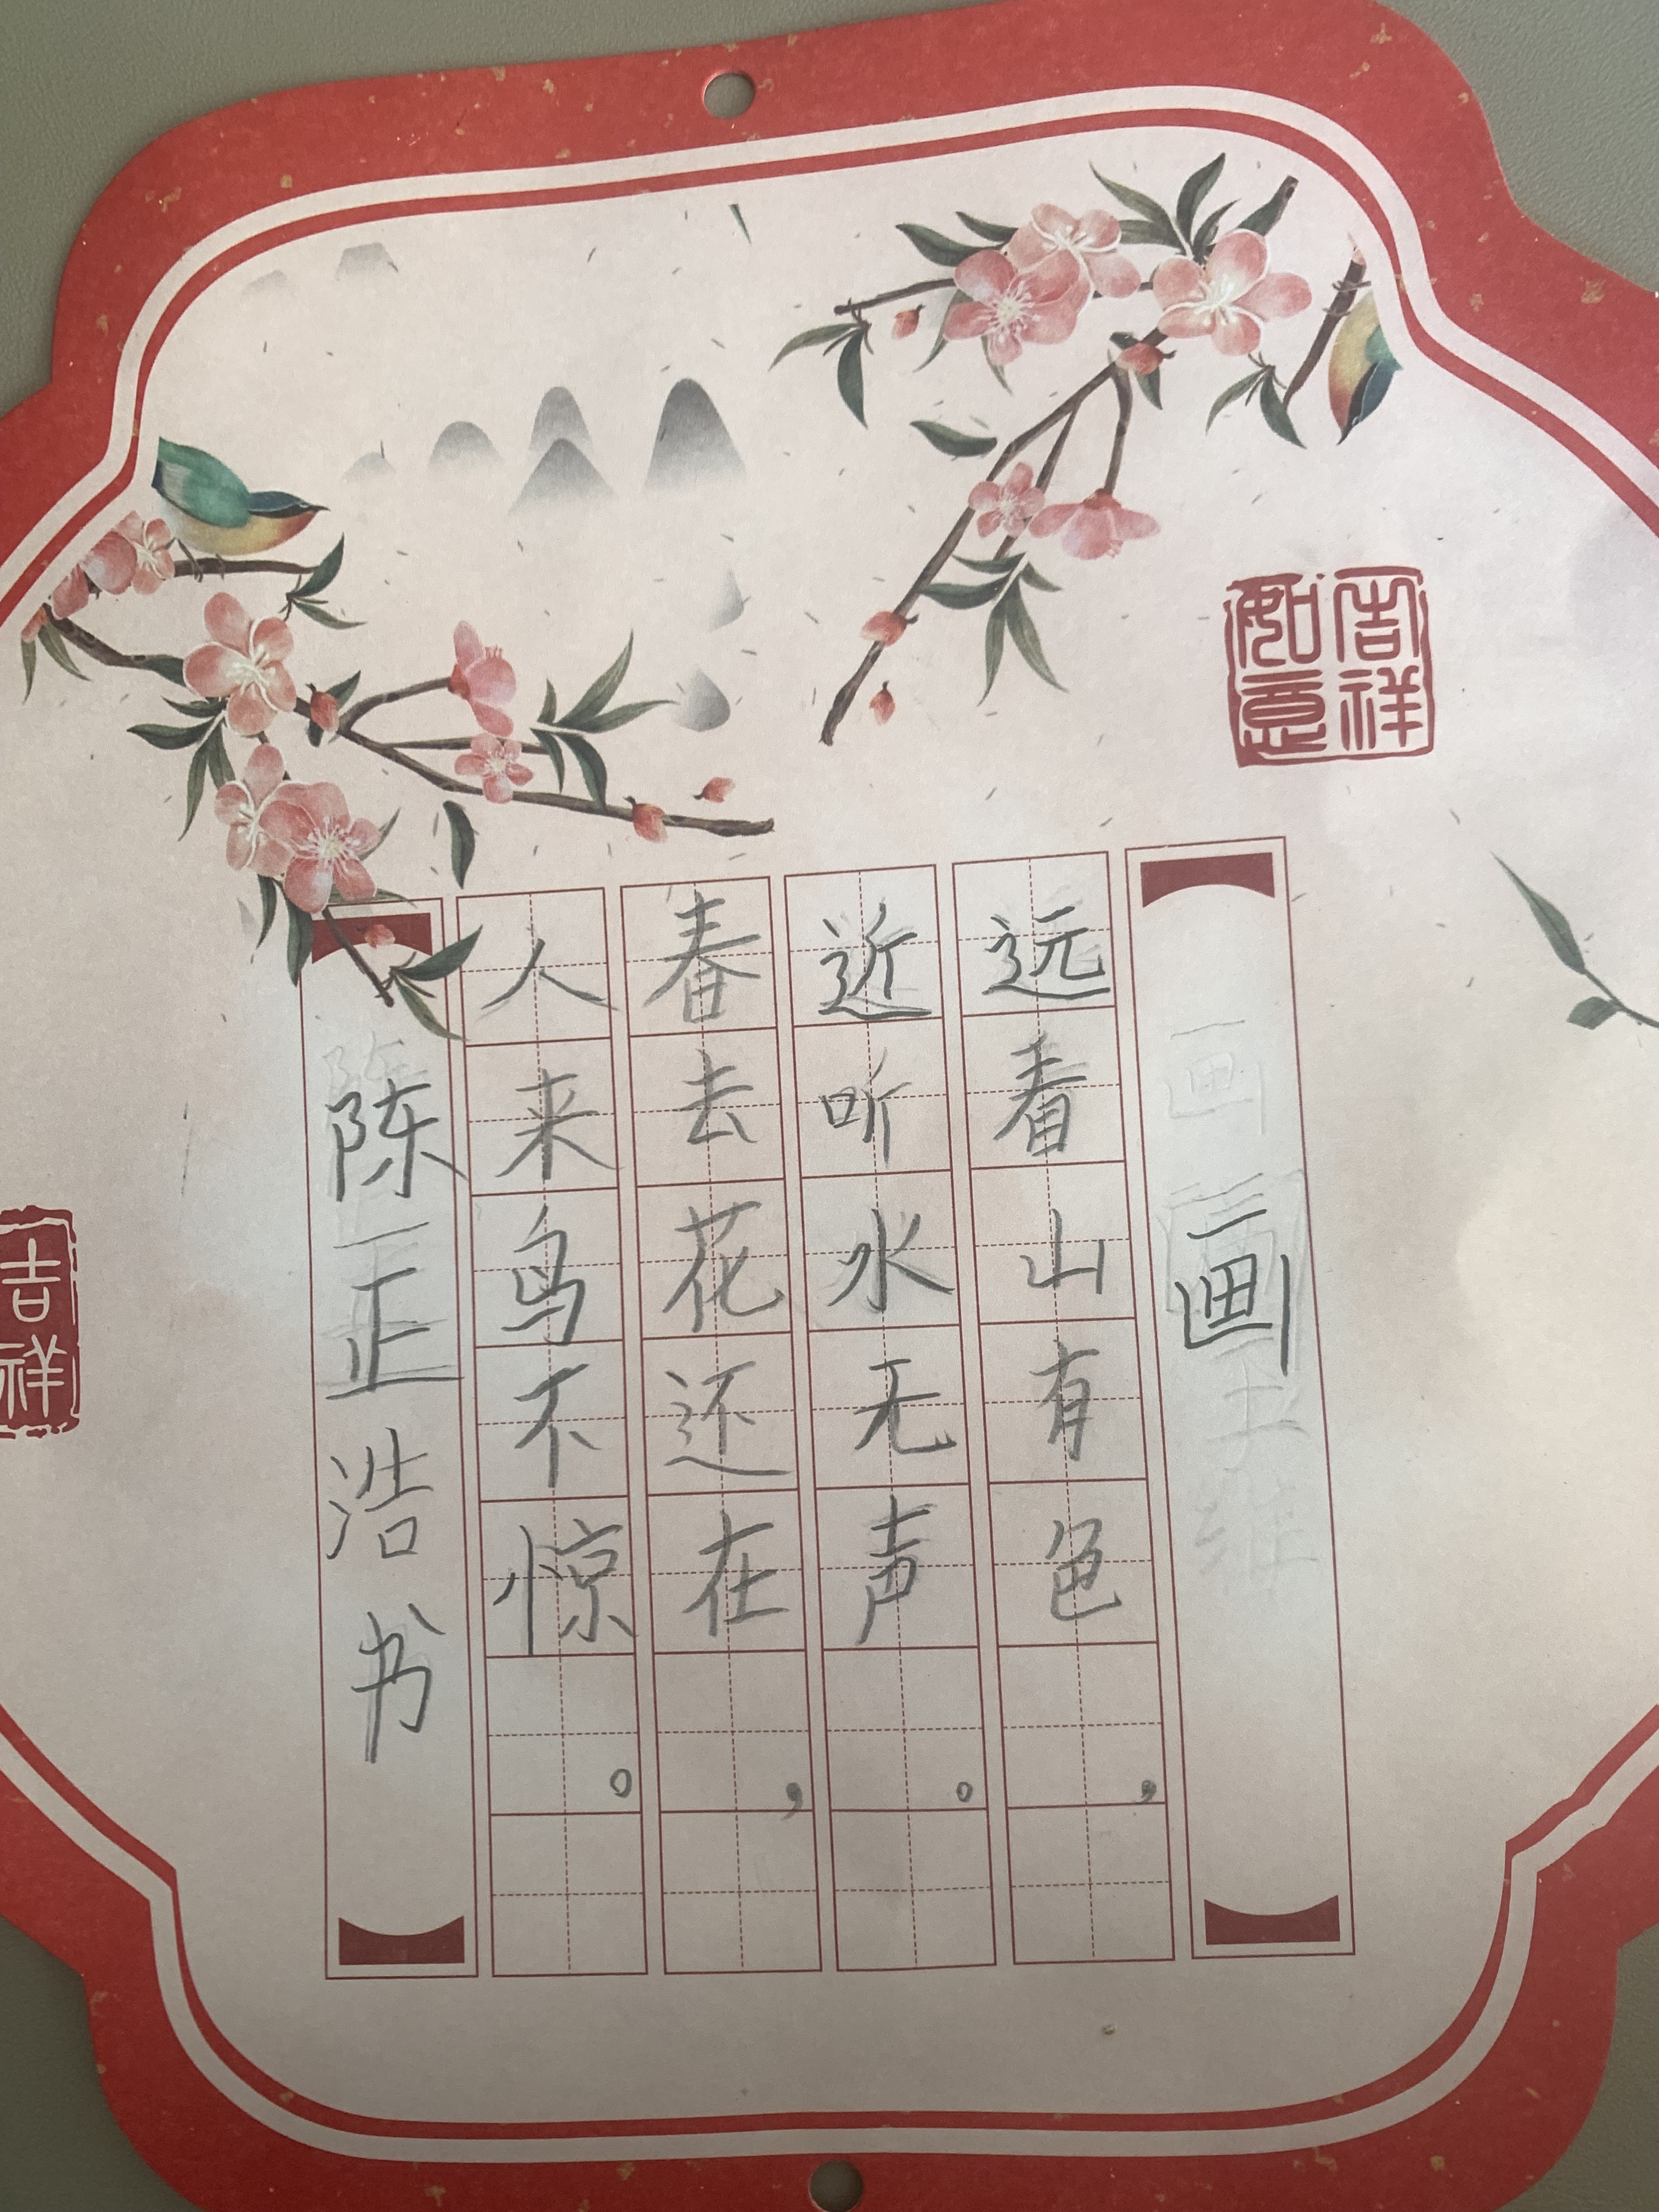 吉祥
如意
画
远看山有色，
近听水无声。
春去花还在，
人来鸟不惊。
陈正浩书
吉祥